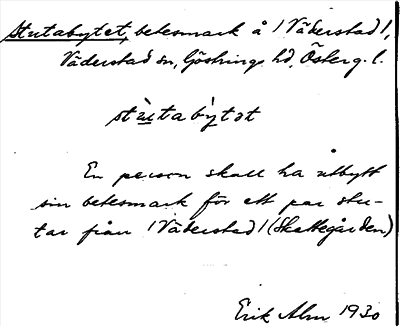 Stutabytet, betesmark å /Väderstad/,
Väderstad sn, Göstrings hd, Österg. l.
stùtabỳtət
En person skall ha utbytt
sin betesmark för ett par stu-
tar från /Väderstad/ (Skattegården)
Erik Alm 1930